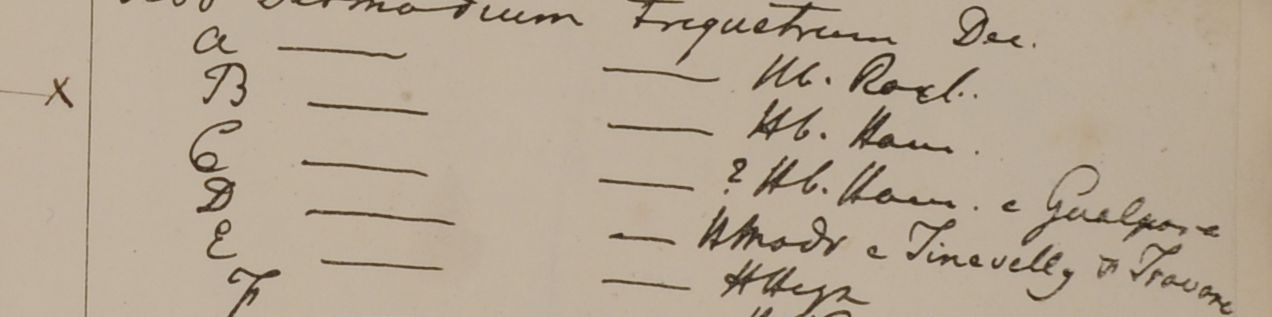 Desmodium triquetrum Dec.
A — — Hb. Roxb.
X B — — Hb. Ham.
C — — ? Hb. Ham. e Gualpara
D — — H Madr e Tinevelly & Travanc
E — — H Heyn
F